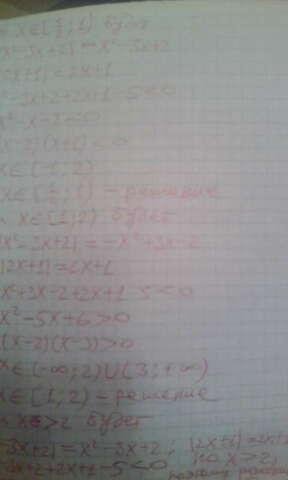 x ∈ [½; 1) будет
x²-3x+2| = x²-3x+2
2x+1| = 2x+1
x²-3x+2+2x+1-5<0
x²-x-2<0
(x-2)(x+1)<0
x ∈ (-1; 2)
x ∈ [½; 1) - решение
x ∈ [1; 2) будет
|x²-3x+2| = -x²+3x-2
|2x+1| = 2x+1
x²+3x-2+2x+1-5<0
x²-5x+6>0
(x-2)(x-3)>0
x ∈ (-∞; 2)∪(3; +∞)
x ∈ [1; 2) - решение
x>2 будет
3x+2| = x²-3x+2; |2x+1| = 2x+1
3x+2+2x+1-5<0 но x>2,
поэтому